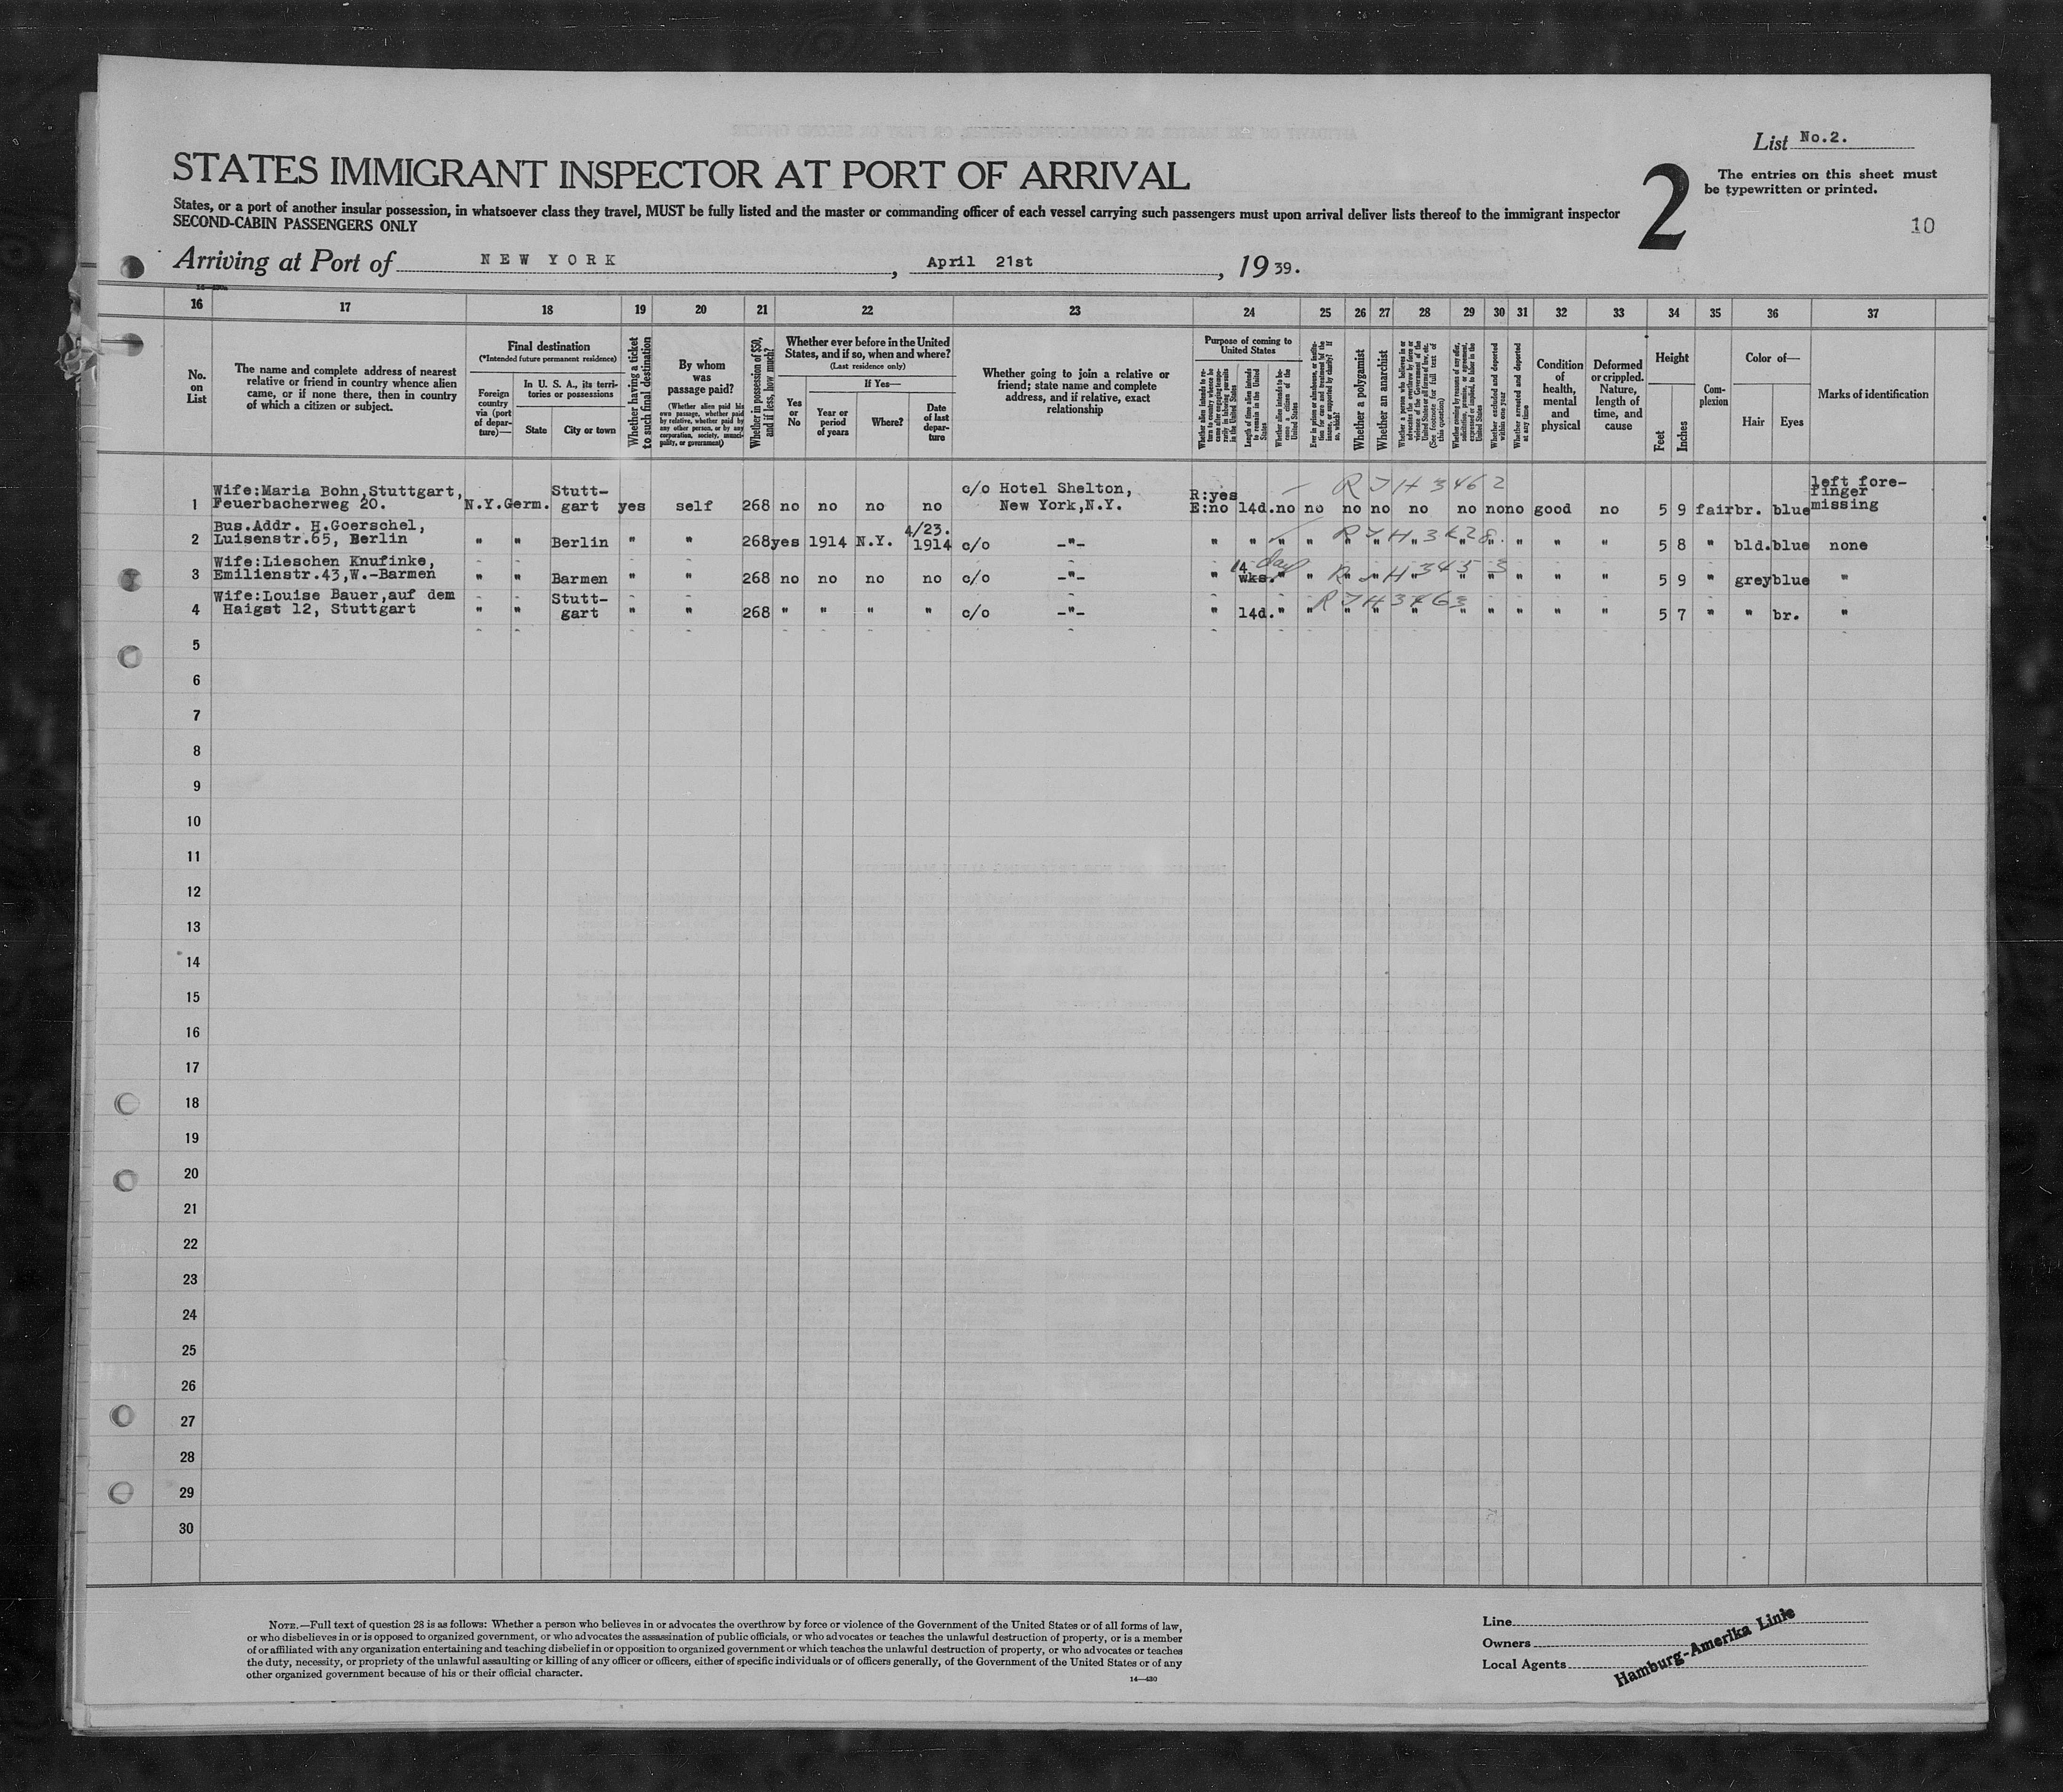 List No.2.
STATES IMMIGRANT INSPECTOR AT PORT OF ARRIVAL
2
The entries on this sheet must
be typewritten or printed.
States, or a port of another insular possession, in whatsoever class they travel, MUST be fully listed and the master or commanding officer of each vessel carrying such passengers must upon arrival deliver lists thereof to the immigrant inspector
SECOND-CABIN PASSENGERS ONLY
10
Arriving at Port of NEW YORK, April 21st, 1939.
16 17 18 19 20 21 22 23 24 25 26 27 28 29 30 31 32 33 34 35 36 37
No. on List
The name and complete address of nearest
relative or friend in country whence alien
came, or if none there, then in country
of which a citizen or subject.
Final destination
(*Intended future permanent residence)
Foreign country via (port of departure)—
In U. S. A., its territories or possessions
State
City or town
Whether having a ticket to such final destination
By whom was passage paid?
(Whether alien paid his own passage, whether paid by relative, whether paid by any other person, or by any corporation, society, municipality, or government)
Whether in possession of $50, and if less, how much?
Whether ever before in the United States, and if so, when and where?
(Last residence only)
Yes or No
If Yes—
Year or period of years
Where?
Date of last departure
Whether going to join a relative or
friend; state name and complete
address, and if relative, exact
relationship
Purpose of coming to United States
Whether alien intends to return to country whence he came after engaging temporarily in laboring pursuits in the United States
Length of time alien intends to remain in the United States
Whether alien intends to become a citizen of the United States
Ever in prison or almshouse, or institution for care and treatment of the insane, or supported by charity? If so, which?
Whether a polygamist
Whether an anarchist
Whether a person who believes in or advocates the overthrow by force or violence of the Government of the United States or all forms of law, etc. (See footnote for full text of this question)
Whether coming by reason of any offer, solicitation, promise, or agreement, expressed or implied, to labor in the United States
Whether excluded and deported within one year
Whether arrested and deported at any time
Condition of health, mental and physical
Deformed or crippled. Nature, length of time, and cause
Height
Feet
Inches
Complexion
Color of—
Hair
Eyes
Marks of identification
R J H 3462
1 Wife:Maria Bohn,Stuttgart, Feuerbacherweg 20. N.Y. Germ. Stutt-gart yes self 268 no no no no c/o Hotel Shelton, New York,N.Y. R:yes E:no 14d. no no no no no no no no good no 5 9 fair br. blue left fore-finger missing
2 Bus.Addr. H.Goerschel, Luisenstr.65, Berlin " " Berlin " " 268 yes 1914 N.Y. 4/23. 1914 c/o -"- " " " " " " " " " " " " 5 8 " bld. blue none
3 Wife:Lieschen Knufinke, Emilienstr.43,W.-Barmen " " Barmen " " 268 no no no no c/o -"- " 14 days wks. " " " " " " " " " " 5 9 " grey blue "
R J H 3453
4 Wife:Louise Bauer,auf dem Haigst 12, Stuttgart " " Stutt-gart " " 268 " " " " c/o -"- " 14d. " " " " " " " " " " 5 7 " " br. "
R J H 3463
5
6
7
8
9
10
11
12
13
14
15
16
17
18
19
20
21
22
23
24
25
26
27
28
29
30
NOTE.—Full text of question 28 is as follows: Whether a person who believes in or advocates the overthrow by force or violence of the Government of the United States or of all forms of law,
or who disbelieves in or is opposed to organized government, or who advocates the assassination of public officials, or who advocates or teaches the unlawful destruction of property, or is a member
of or affiliated with any organization entertaining and teaching disbelief in or opposition to organized government or which teaches the unlawful destruction of property, or who advocates or teaches
the duty, necessity, or propriety of the unlawful assaulting or killing of any officer or officers, either of specific individuals or of officers generally, of the Government of the United States or of any
other organized government because of his or their official character.
14—430
Line
Owners
Local Agents
Hamburg-Amerika Linie